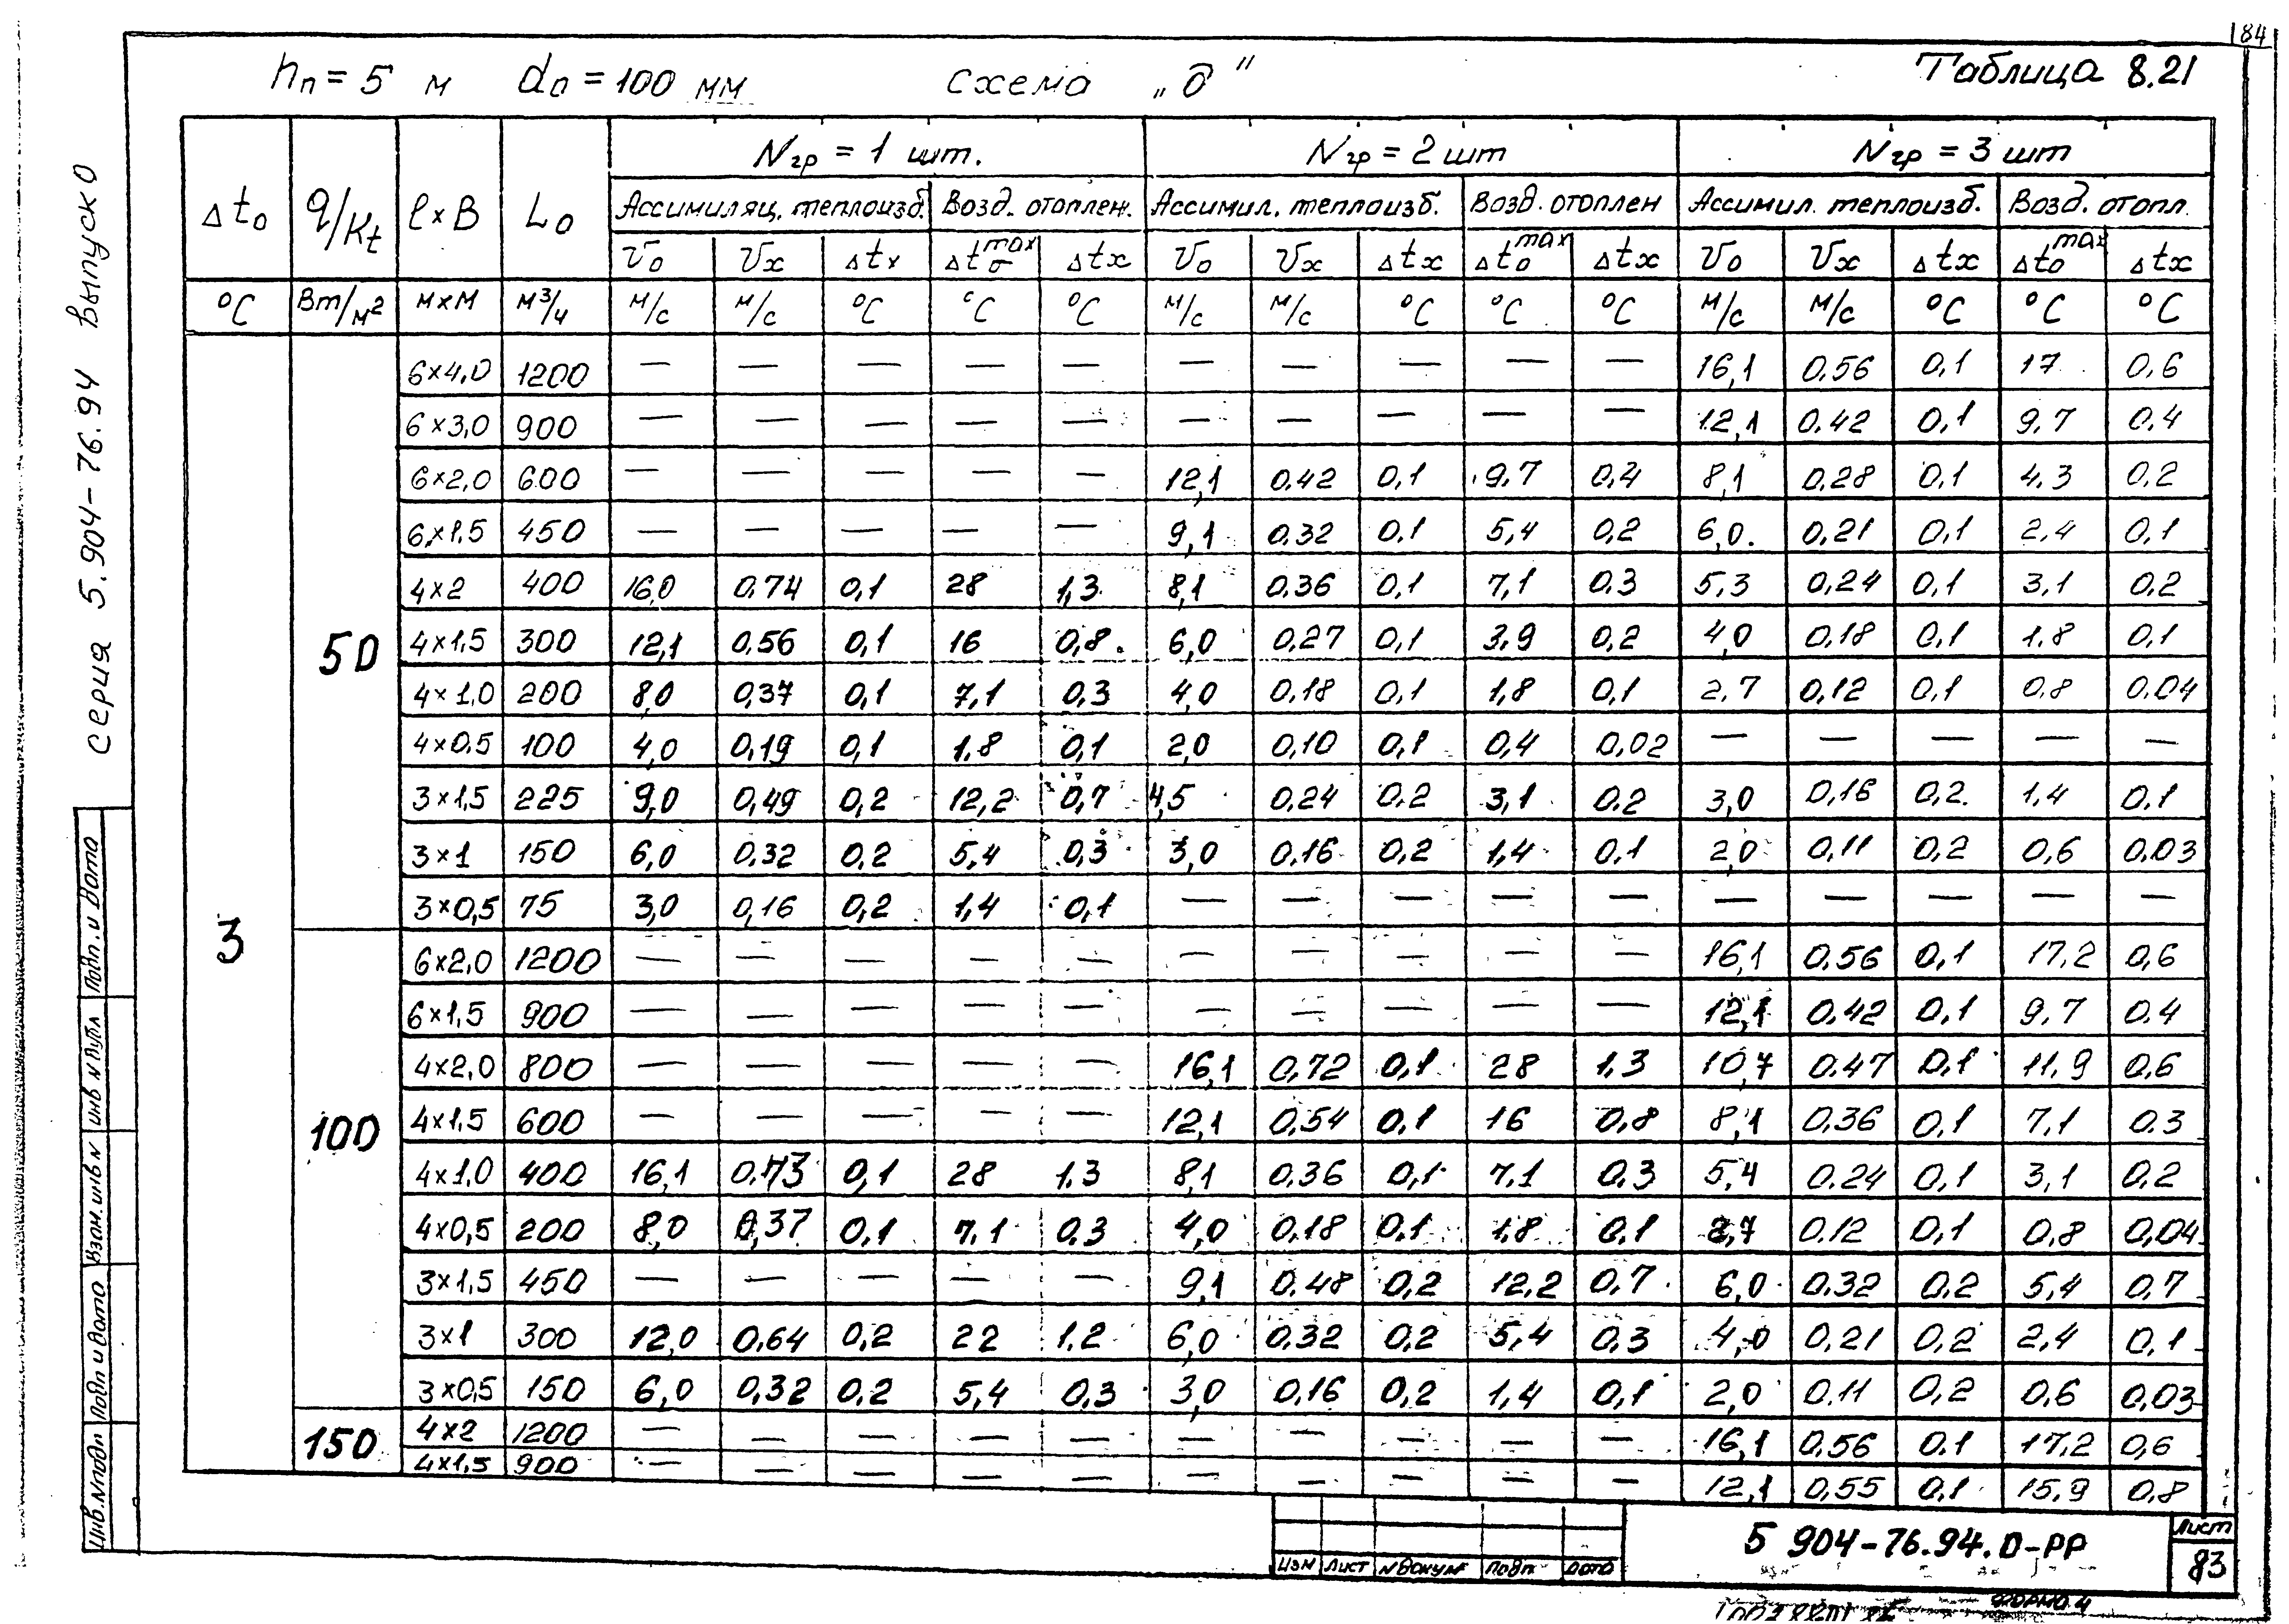 84
hп = 5 м dо = 100 мм схема „д" Таблица 8.21
Δtо q/Kt l×В Lо Nгр = 1 шт. Nгр = 2 шт Nгр = 3 шт
Ассимиляц. теплоизб. Возд. отоплен. Ассимил. теплоизб. Возд. отоплен Ассимил. теплоизб. Возд. отопл.
Vо Vх Δtх Δtо max Δtх Vо Vх Δtх Δtо max Δtх Vо Vх Δtх Δtо max Δtх
°С Вт/м² м×м м³/ч м/с м/с °С °С °С м/с м/с °С °С °С м/с м/с °С °С °С
3
50
6×4,0 1200 — — — — — — — — — — 16,1 0.56 0,1 17 0,6
6×3,0 900 — — — — — — — — — — 12,1 0.42 0,1 9,7 0,4
6×2,0 600 — — — — — 12,1 0.42 0,1 9.7 0,4 8,1 0.28 0,1 4.3 0,2
6×1,5 450 — — — — — 9,1 0.32 0,1 5,4 0,2 6,0 0,21 0,1 2,4 0,1
4×2 400 16,0 0,74 0,1 28 1,3 8,1 0.36 0,1 7,1 0.3 5,3 0,24 0,1 3,1 0,2
4×1,5 300 12,1 0,56 0,1 16 0,8 6,0 0,27 0,1 3,9 0,2 4,0 0,18 0,1 1,8 0,1
4×1,0 200 8,0 0,37 0,1 7,1 0,3 4,0 0,18 0,1 1,8 0,1 2,7 0,12 0,1 0,8 0.04
4×0,5 100 4,0 0,19 0,1 1,8 0,1 2,0 0,10 0,1 0,4 0,02 — — — — —
3×1,5 225 9,0 0,49 0,2 12,2 0,7 4,5 0,24 0,2 3,1 0.2 3,0 0,16 0,2 1,4 0,1
3×1 150 6,0 0,32 0,2 5,4 0,3 3,0 0.16 0,2 1,4 0,1 2,0 0,11 0,2 0,6 0,03
3×0,5 75 3,0 0,16 0,2 1,4 0,1 — — — — — — — — — —
100
6×2,0 1200 — — — — — — — — — — 16,1 0.56 0,1 17,2 0,6
6×1,5 900 — — — — — — — — — — 12,1 0.42 0,1 9,7 0.4
4×2,0 800 — — — — — 16,1 0,72 0,1 28 1.3 10,7 0.47 0,1 11,9 0,6
4×1,5 600 — — — — — 12,1 0,54 0,1 16 0,8 8,1 0,36 0,1 7,1 0.3
4×1,0 400 16,1 0.73 0,1 28 1.3 8,1 0,36 0,1 7,1 0.3 5,4 0.24 0,1 3,1 0,2
4×0,5 200 8,0 0,37 0,1 7.1 0.3 4,0 0,18 0,1 1.8 0,1 2,7 0.12 0,1 0,8 0,04
3×1,5 450 — — — — — 9,1 0.48 0,2 12.2 0,7 6,0 0.32 0,2 5,4 0,7
3×1 300 12,0 0,64 0,2 22 1.2 6,0 0.32 0,2 5,4 0,3 4,0 0,21 0,2 2,4 0,1
3×0,5 150 6,0 0,32 0.2 5,4 0.3 3,0 0,16 0,2 1,4 0,1 2,0 0.11 0,2 0,6 0,03
150
4×2 1200 — — — — — — — — — — 16,1 0,56 0.1 17,2 0,6
4×1,5 900 — — — — — — — — — — 12,1 0,55 0,1 15,9 0,8
серия 5.904-76.94 выпуск 0
Подп. и дата
инв N дубл
Взам. инв N
Подп и дата
Инв. N подл
изм лист N докум Подп дата
5 904-76.94.0-РР
Лист
83
формат 4